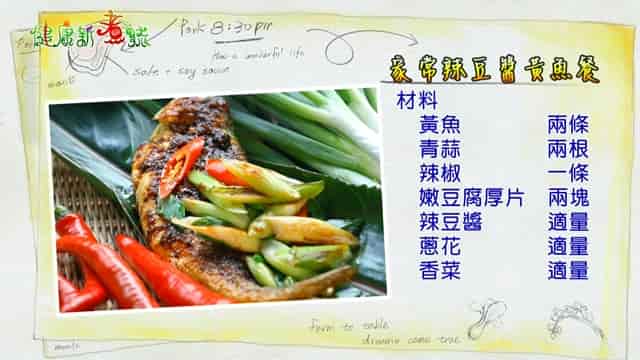 健康新煮藝
Pork 8:30pm
How a wonderful life
safe + soy sauce
家常辣豆醬黃魚餐
材料
黃魚 兩條
青蒜 兩根
辣椒 一條
嫩豆腐厚片 兩塊
辣豆醬 適量
蔥花 適量
香菜 適量
Farm to table
dreamin come true